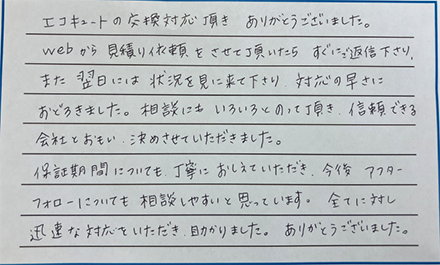 エコキュートの交換対応頂き ありがとうございました。
webから見積り依頼をさせて頂いたら すぐにご返信下さり、
また 翌日には 状況を見に来て下さり、対応の早さに
おどろきました。相談にも いろいろとのって頂き、信頼できる
会社とおもい、決めさせていただきました。
保証期間についても、丁寧に おしえていただき、今後 アフター
フォローについても 相談しやすいと思っています。 全てに対し
迅速な対応をいただき、助かりました。 ありがとうございました。